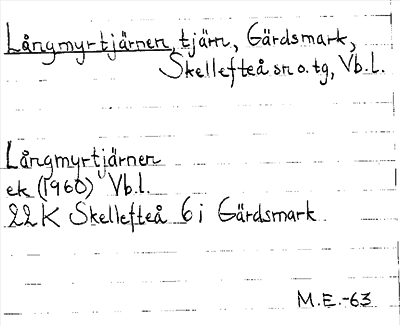 Långmyrtjärnen, tjärn, Gärdsmark,
Skellefteå sn o. tg, Vb.l.
Långmyrtjärnen
ek (1960) Vb.l.
22K Skellefteå 6 i Gärdsmark
M.E.-63